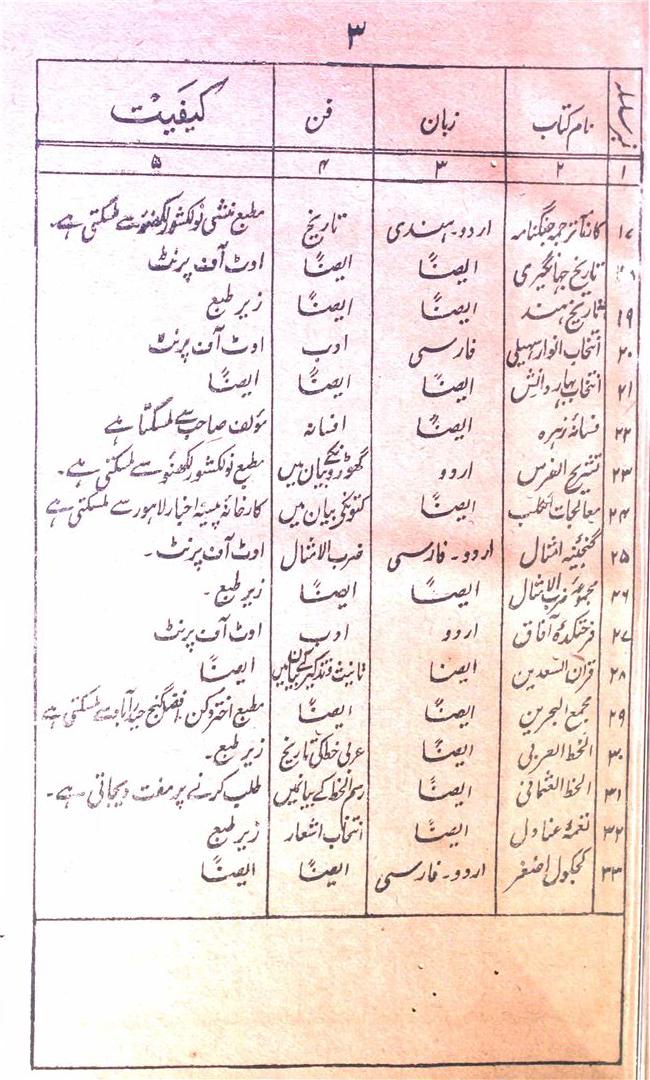 ۳
نمبر سلسلہ نام کتاب زبان فن کیفیت
۱ ۲ ۳ ۴ ۵
۱۷ ترجمہ جنگنامہ اردو۔ ہندی تاریخ مطبع منشی نولکشور لکھنؤ سے ملسکتی ہے۔
تاریخ جہانگیری ایضاً ایضاً اوٹ آف پرنٹ
۱۹ تاریخ ہند ایضاً ایضاً زیر طبع
۲۰ انتخاب انوار سہیلی فارسی ادب اوٹ آف پرنٹ
۲۱ انتخاب بہار دانش ایضاً ایضاً ایضاً
۲۲ فسانۂ زہرہ ایضاً افسانہ مؤلف صاحب سے ملسکتا ہے
۲۳ تشریح الفرس اردو گھوڑونکے بیان میں مطبع نولکشور لکھنؤ سے ملسکتی ہے۔
۲۴ معالجات الکلب ایضاً کتونکے بیان میں کارخانۂ پیسہ اخبار لاہور سے ملسکتی ہے
۲۵ گنجینۂ امثال اردو۔ فارسی ضرب الامثال اوٹ آف پرنٹ۔
۲۶ مجموعۂ ضرب الامثال ایضاً ایضاً زیر طبع۔
۲۷ فرخندکدۂ آفاق اردو ادب اوٹ آف پرنٹ
۲۸ قران السعدین ایضاً تانیث و تذکیر کے بیان میں ایضاً
۲۹ مجمع البحرین ایضاً ایضاً مطبع اختر دکن افضل گنج حیدرآباد سے ملسکتی ہے
۳۰ الخط العربی ایضاً عربی خط کی تاریخ زیر طبع۔
۳۱ الخط العثمانی ایضاً رسم الخط کے بیانمیں طلب کرنے پر مفت دیجاتی ہے۔
۳۲ نغمۂ عنادل ایضاً انتخاب اشعار زیر طبع
۳۳ کجکول اصغر اردو۔ فارسی ایضاً ایضاً